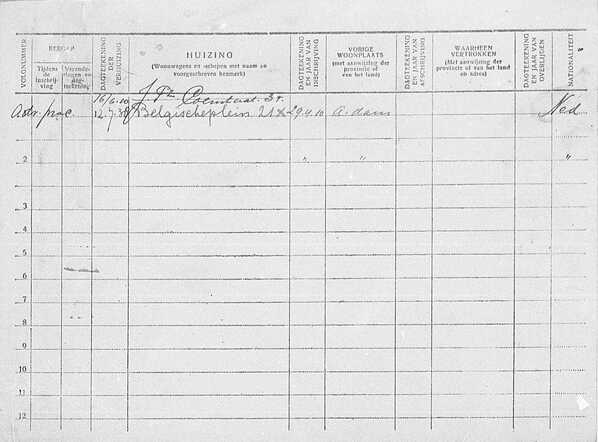 VOLGNUMMER
BEROEP
Tijdens de inschrijving
DAGTEEKENING DER VERHUIZING
HUIZING
(Woonwagens en -schepen met naam en voorgeschreven kenmerk)
DAGTEEKENING EN JAAR VAN INSCHRIJVING
VORIGE WOONPLAATS
(met aanwijzing der provincie of van het land)
DAGTEEKENING EN JAAR VAN AFSCHRIJVING
WAARHEEN VERTROKKEN
(Met aanwijzing der provincie of van het land en adres)
DAGTEEKENING EN JAAR VAN OVERLIJDEN
NATIONALITEIT
16/6.10 J. Pz. Coenstraat 37
Adv. proc. 12.7.38 Belgischeplein 21 29.4.10 A.dam Ned
2 " " "
3
4
5
6
7
8
9
10
11
12